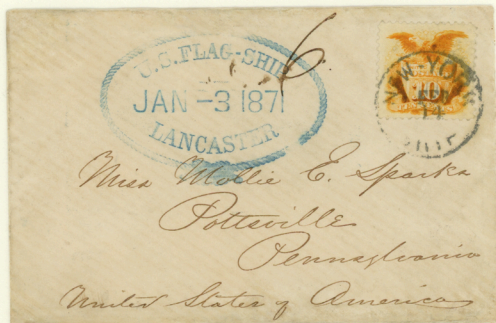 U.S. FLAG-SHIP
JAN -3 1871
LANCASTER
6
NEW-YORK
14
10
Miss Mollie E. Sparks
Pottsville
Pennsylvania
United States of America